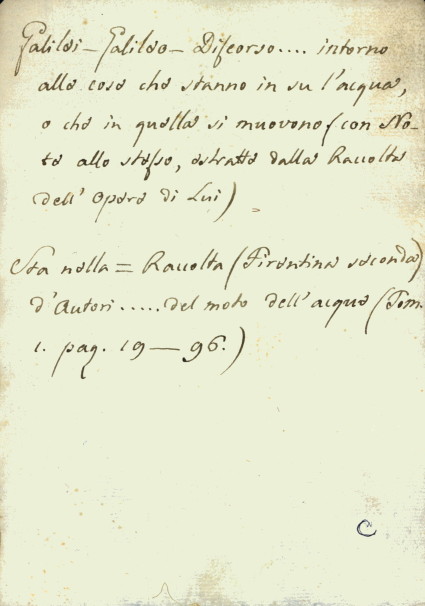 Galilei — Galileo — Discorso.... intorno
alle cose che stanno in su l'acqua,
o che in quella si muovono (con No-
te allo stesso, estratte dalla Raccolta
dell' Opere di Lui)
Sta nella = Raccolta (Fiorentina seconda)
d'Autori ..... del moto dell'acque (Tom.
1. pag. 19 — 96.)
C